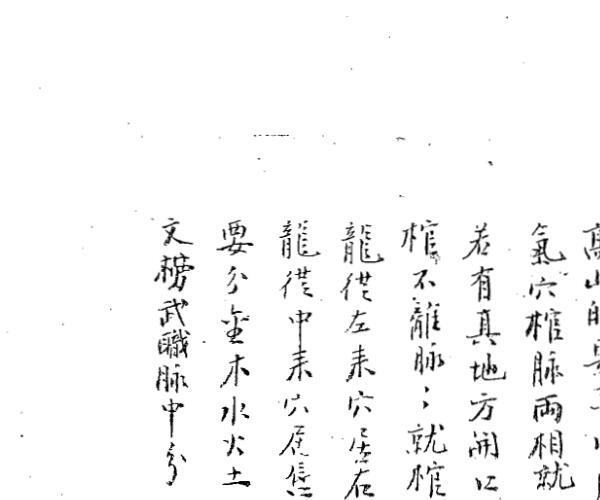 高山
氣穴棺脉兩相就
若有真地方開口
棺不離脉〻就棺
龍從左耒穴居
龍從中耒穴居
要分金木水火土
文榜武職脉中分